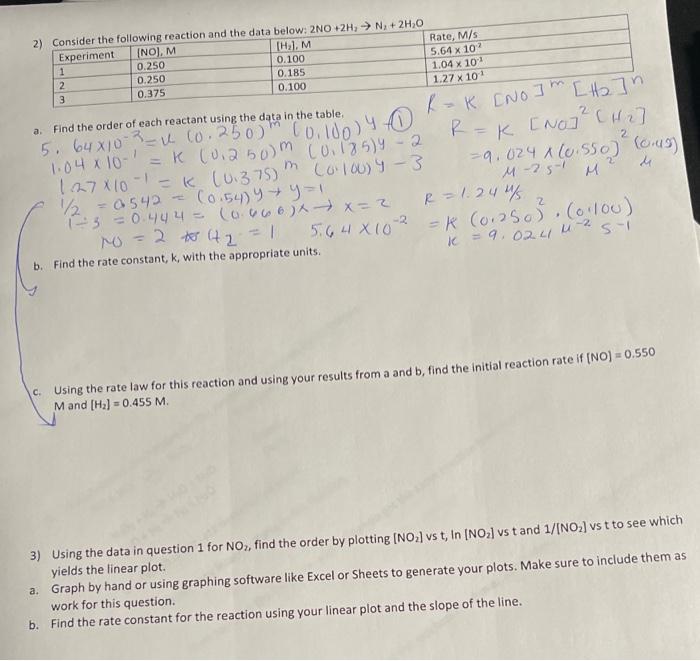 2) Consider the following reaction and the data below: 2NO +2H₂ → N₂ + 2H₂O
Experiment [NO], M [H₂], M Rate, M/s
1 0.250 0.100 5.64 x 10⁻²
2 0.250 0.185 1.04 x 10⁻¹
3 0.375 0.100 1.27 x 10⁻¹
a. Find the order of each reactant using the data in the table.
R = K [NO]ᵐ [H₂]ⁿ
5.64x10⁻² = K (0.250)ᵐ (0.100)ʸ - ①
R = K [NO]² [H₂]
1.04 x 10⁻¹ = K (0.250)ᵐ (0.185)ʸ - 2
= 9.024 x (0.550)² (0.45)
M⁻² s⁻¹ M² M
1.27x10⁻¹ = K (0.375)ᵐ (0.100)ʸ - 3
1/2 = 0.542 = (0.54)ʸ → y = 1
R = 1.24 M/s
1÷3 = 0.444 = (0.666)ˣ → x = 2
5.64x10⁻² = K (0.250)² . (0.100)
NO = 2 H₂ = 1
K = 9.024 M⁻² s⁻¹
b. Find the rate constant, k, with the appropriate units.
c. Using the rate law for this reaction and using your results from a and b, find the initial reaction rate if [NO] = 0.550
M and [H₂] = 0.455 M.
3) Using the data in question 1 for NO₂, find the order by plotting [NO₂] vs t, ln [NO₂] vs t and 1/[NO₂] vs t to see which
yields the linear plot.
a. Graph by hand or using graphing software like Excel or Sheets to generate your plots. Make sure to include them as
work for this question.
b. Find the rate constant for the reaction using your linear plot and the slope of the line.